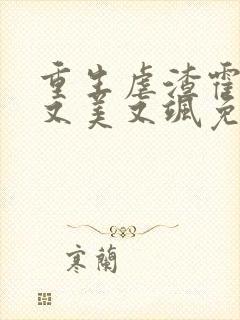 重生虐渣霍
又美又飒免
寒蘭